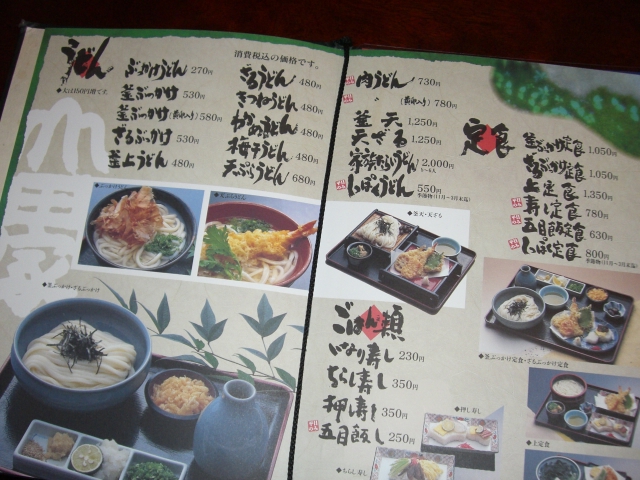 うどん
消費税込の価格です。
大は150円増です。
ぶっかけうどん 270円
釜ぶっかけ 530円
釜ぶっかけ(肉入り) 580円
ざるぶっかけ 530円
釜上うどん 480円
ざるうどん 480円
きつねうどん 480円
わかめうどん 480円
梅干うどん 480円
天ぷらうどん 680円
◆ぶっかけうどん
◆天ぷらうどん
◆釜ぶっかけ・ざるぶっかけ
肉うどん 730円
780円
釜天 1,250円
天ざる 1,250円
家族うどん 2,000円
しっぽくうどん 550円
季節物(11月〜3月末迄)
◆釜天・天ざる
定食
釜ぶっかけ定食 1,050円
ざるぶっかけ定食 1,050円
上定食 1,350円
寿し定食 780円
五目飯定食 630円
しっぽく定食 800円
季節物(11月〜3月末迄)
◆釜ぶっかけ定食・ざるぶっかけ定食
◆上定食
ごはん類
いなり寿し 230円
ちらし寿し 350円
押し寿し 350円
五目飯し 250円
◆押し寿し
ちらし寿し